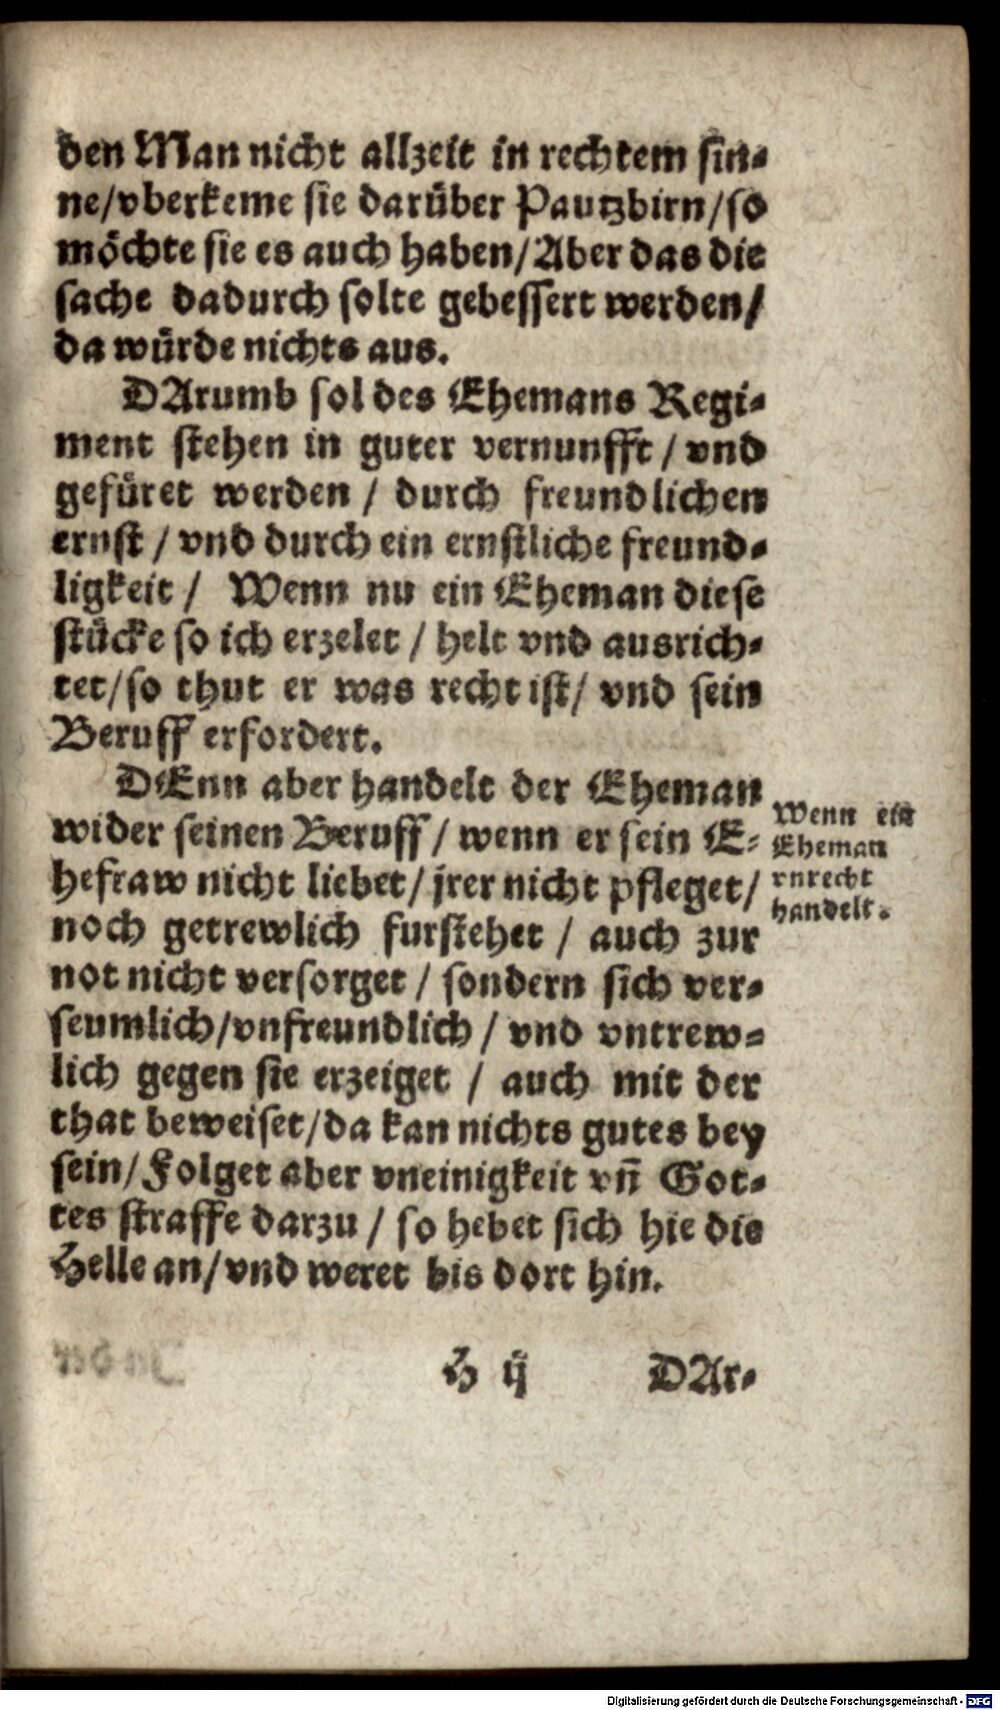 den Man nicht allzeit in rechtem sin-
ne/vberkeme sie darüber Pautzbirn/so
möchte sie es auch haben/Aber das die
sache dadurch solte gebessert werden/
da würde nichts aus.
DArumb sol des Ehemans Regi-
ment stehen in guter vernunfft / vnd
gefüret werden / durch freundlichen
ernst / vnd durch ein ernstliche freund-
ligkeit / Wenn nu ein Eheman diese
stücke so ich erzelet / helt vnd ausrich-
tet/so thut er was recht ist/ vnd sein
Beruff erfordert.
DEnn aber handelt der Eheman
wider seinen Beruff / wenn er sein E-
hefraw nicht liebet/ jrer nicht pfleget/
noch getrewlich furstehet / auch zur
not nicht versorget / sondern sich ver-
seumlich/vnfreundlich / vnd vntrew-
lich gegen sie erzeiget / auch mit der
that beweiset/da kan nichts gutes bey
sein/Folget aber vneinigkeit vn̄ Got-
tes straffe darzu / so hebet sich hie die
Helle an/vnd weret bis dort hin.
Wenn ein
Eheman
vnrecht
handelt.
H ij DAr-
Digitalisierung gefördert durch die Deutsche Forschungsgemeinschaft - DFG